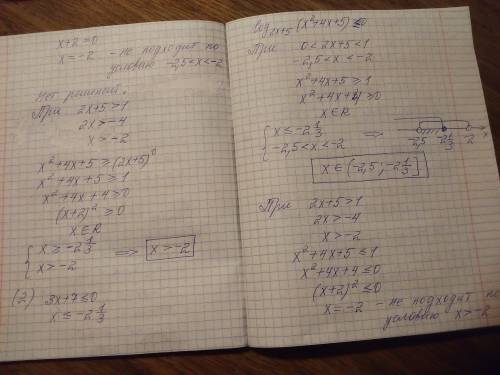 x+2=0
x=-2 - не подходит по
условию -2,5<x<-2
Нет решений.
При 2x+5>1
2x>-4
x>-2
x²+4x+5≥(2x+5)⁰
x²+4x+5≥1
x²+4x+4≥0
(x+2)²≥0
x∈R
{ x≥-2 1/3
x>-2 ⟹ x>-2
(2) 3x+7≤0
x≤-2 1/3
log₂ₓ₊₅(x²+4x+5)≤0
При 0<2x+5<1
-2,5<x<-2
x²+4x+5≥1
x²+4x+4≥0
x∈R
{ x≤-2 1/3
-2,5<x<-2 ⟹ -2,5 -2 1/3 -2 x
x∈(-2,5; -2 1/3]
При 2x+5>1
2x>-4
x>-2
x²+4x+5≤1
x²+4x+4≤0
(x+2)²≤0
x=-2 - не подходит по
условию x>-2